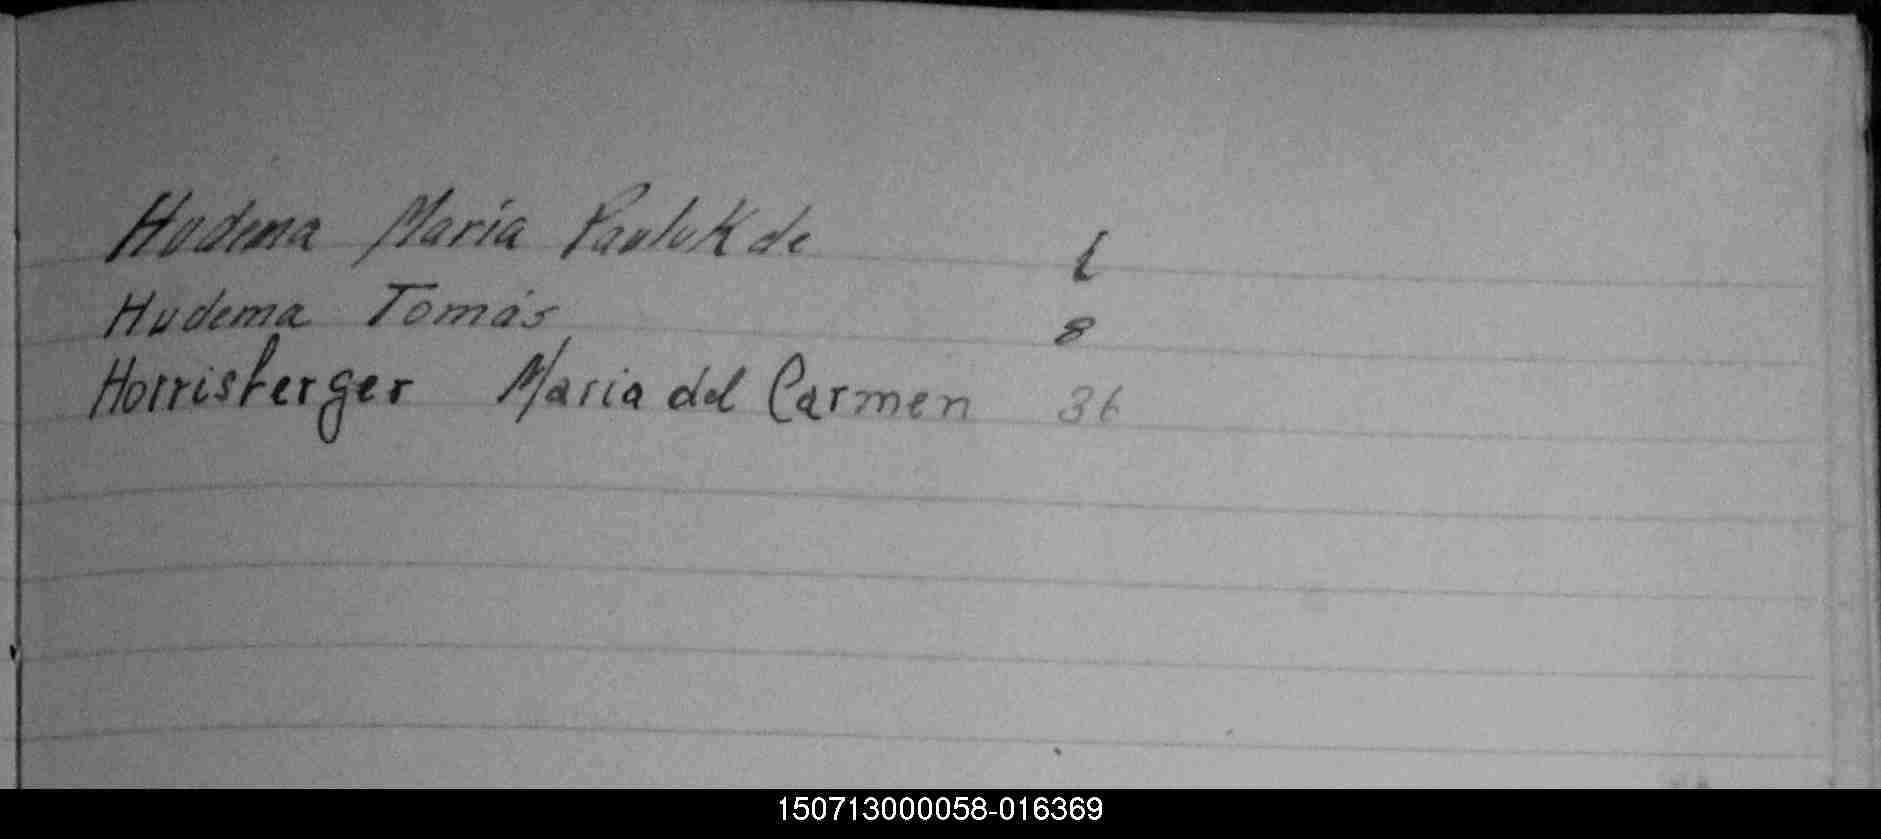 Hudema María Pauluk de 6
Hudema Tomás 8
Horrisberger Maria del Carmen 36
150713000058-016369